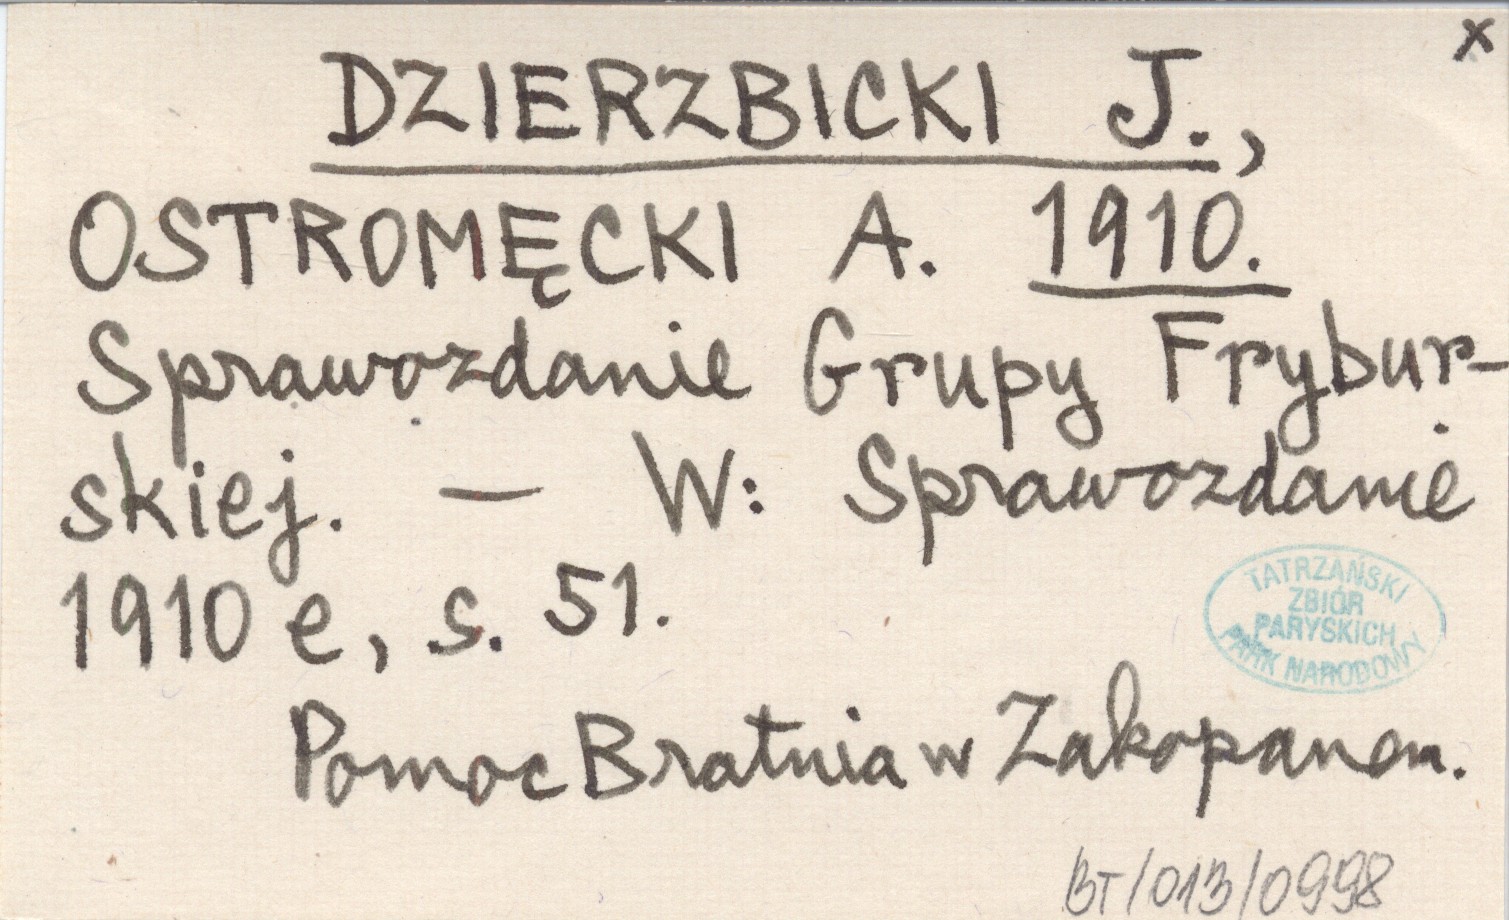 x
DZIERZBICKI J.,
OSTROMĘCKI A. 1910.
Sprawozdanie Grupy Frybur-
skiej. — W: Sprawozdanie
1910 e, s. 51.
TATRZAŃSKI
ZBIÓR
PARYSKICH
PARK NARODOWY
Pomoc Bratnia w Zakopanem.
BT/013/0998